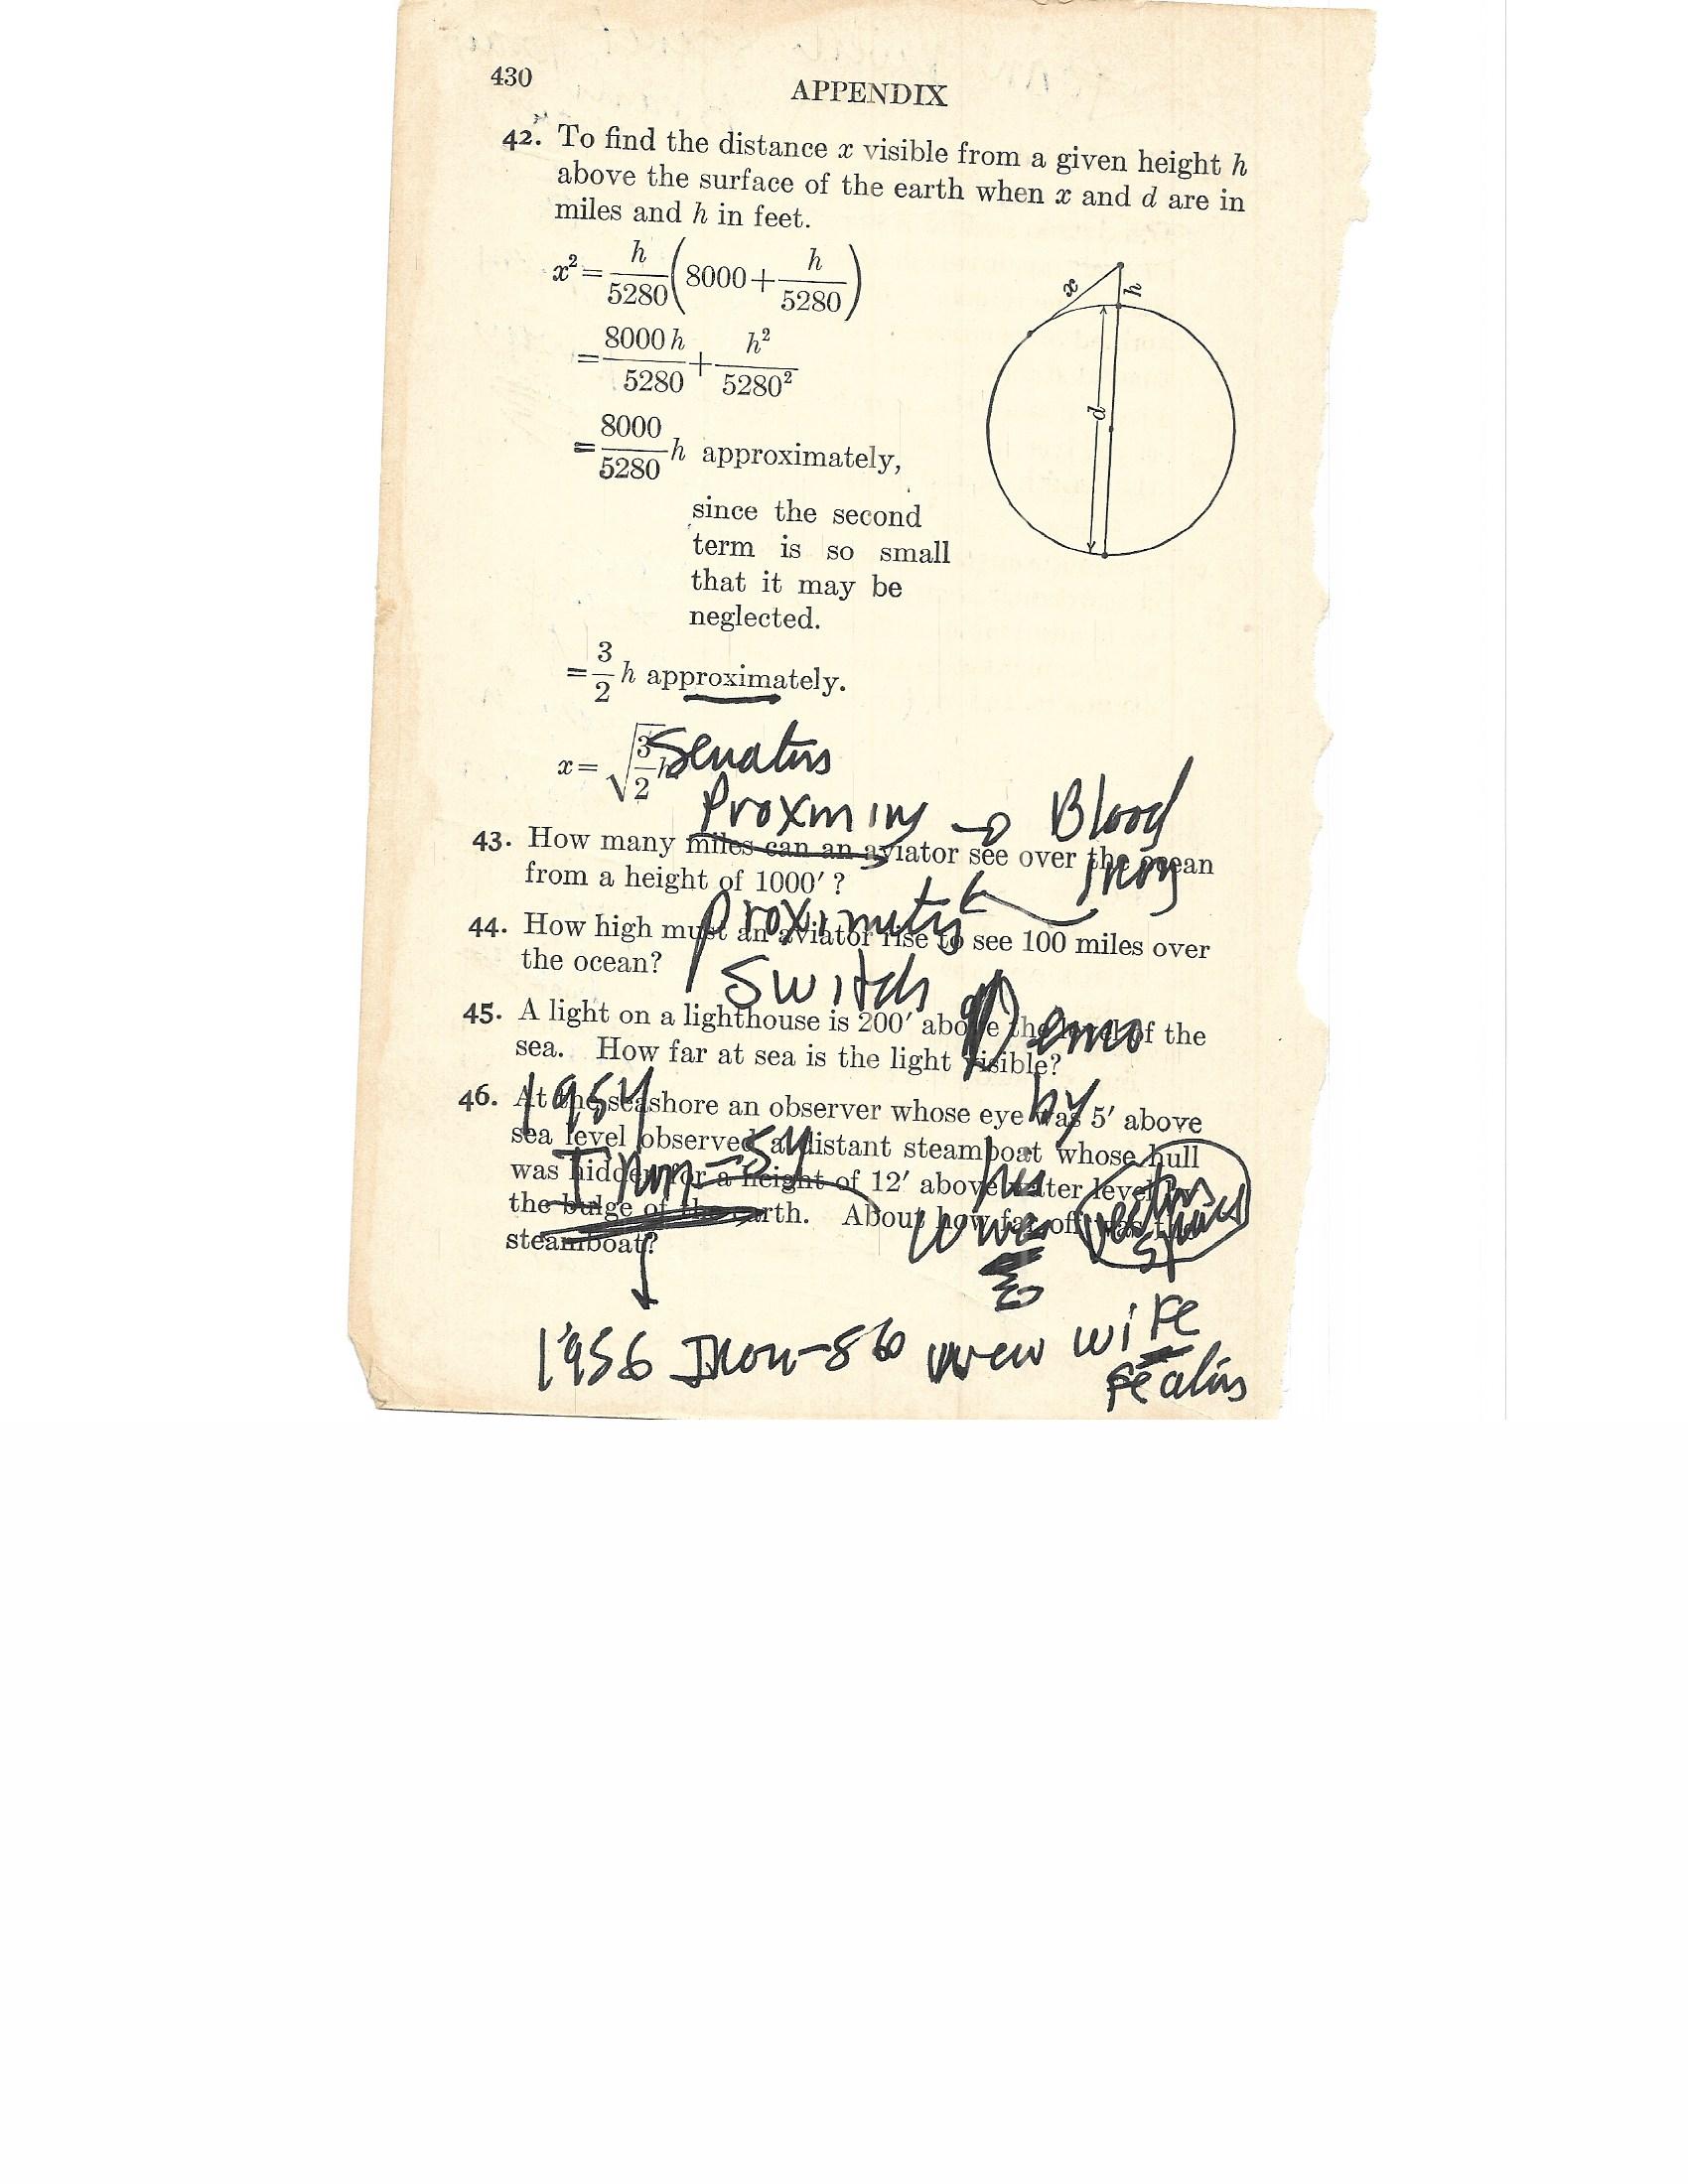 430
APPENDIX
42. To find the distance x visible from a given height h
above the surface of the earth when x and d are in
miles and h in feet.
x² = h/5280 (8000 + h/5280)
= 8000 h/5280 + h²/5280²
= 8000/5280 h approximately,
since the second
term is so small
that it may be
neglected.
= 3/2 h approximately.
x h
d
x = √(3/2 h
Senators
Proxmiry → Blood
43. How many miles can an aviator see over the ocean
from a height of 1000′?
Proximity
44. How high must an aviator rise to see 100 miles over
the ocean?
Switch
Demo
45. A light on a lighthouse is 200′ above the level of the
sea. How far at sea is the light visible?
1954 by
46. At the seashore an observer whose eye was 5′ above
sea level observed a distant steamboat whose hull
was hidden for a height of 12′ above water level by
the bulge of the earth. About how far off was the
steamboat?
his
1956 wife